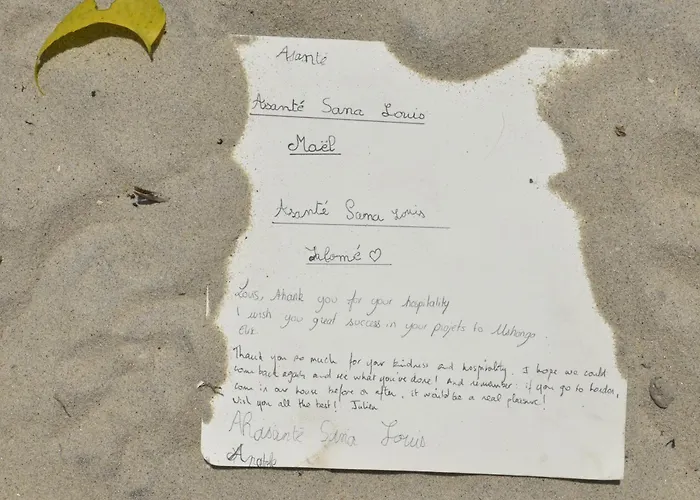 Asanté
Asanté Sana Louis
Maël
Asanté Sana Louis
Salomé ♡
Louis, thank you for your hospitality
I wish you great success in your projets to Mshongo.
Thank you so much for your kindness and hospitality. I hope we could
come back again and see what you've done! And remember: if you go to
come in our house before or after, it would be a real pleasure!
Wish you all the best! Julien
Asanté Sana Louis